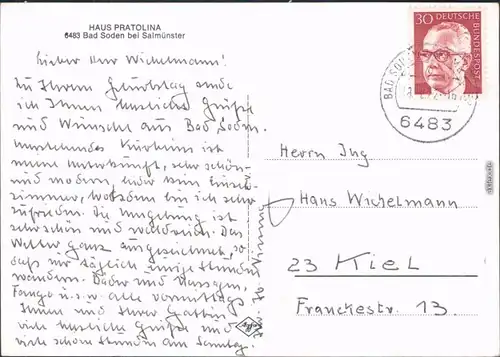 HAUS PRATOLINA
6483 Bad Soden bei Salmünster
Lieber Herr Wichelmann!
Zu Ihrem Geburtstag sende
ich Ihnen herzliche Grüße
und Wünsche aus Bad Soden.
Umstehendes Kurheim ist
meine Unterkunft, sehr schön
und modern, leider kein Einzel-
zimmer, trotzdem bin ich sehr
zufrieden. Die Umgebung ist
sehr schön und waldreich. Das
Wetter ganz ausgezeichnet, so
daß wir täglich einige Stunden
wandern. Bäder und Massagen,
Fango u.s.w. alle vormittags.
Ihnen und Ihrer Gattin
viele herzliche Grüße und
viele schöne Stunden am Sonntag.
30 DEUTSCHE
BUNDESPOST
BAD SO
6483
Herrn Ing
Hans Wichelmann
23 Kiel
Franckestr. 13.